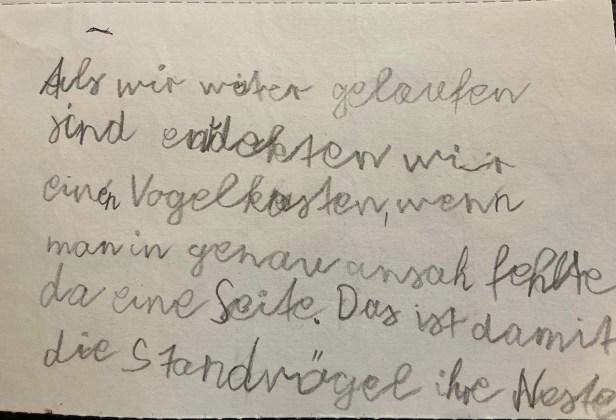 Als wir weiter gelaufen
sind entdekten wir
einen Vogelkasten, wenn
man in genau ansah fehlte
da eine Seite. Das ist damit
die Standvögel ihre Neste